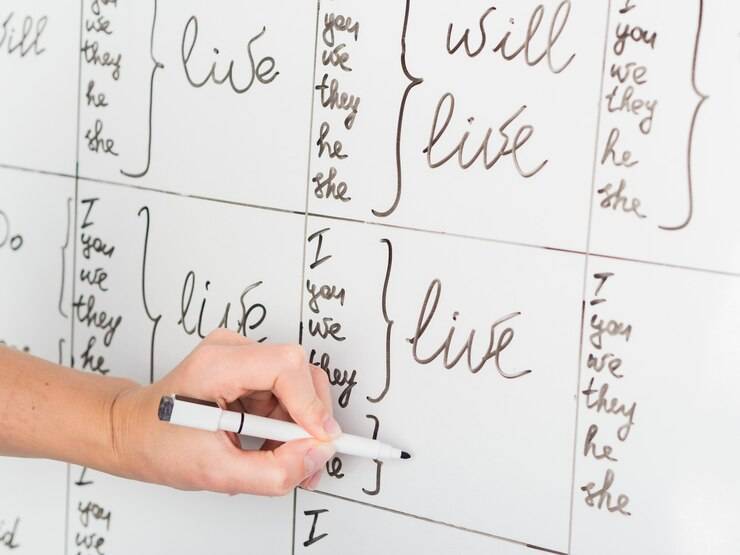 will
we
they
he
she
live
you
we
they
he
she
will
live
I
you
we
they
he
she
Do
I
you
we
they
he
live
I
you
we
they
live
I
you
we
they
he
she
I
you
we
I